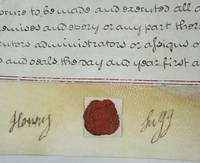 to be made and executed all
and every or any part there
administrators or assigns of
and seals the day and year first a
Henry Sugg